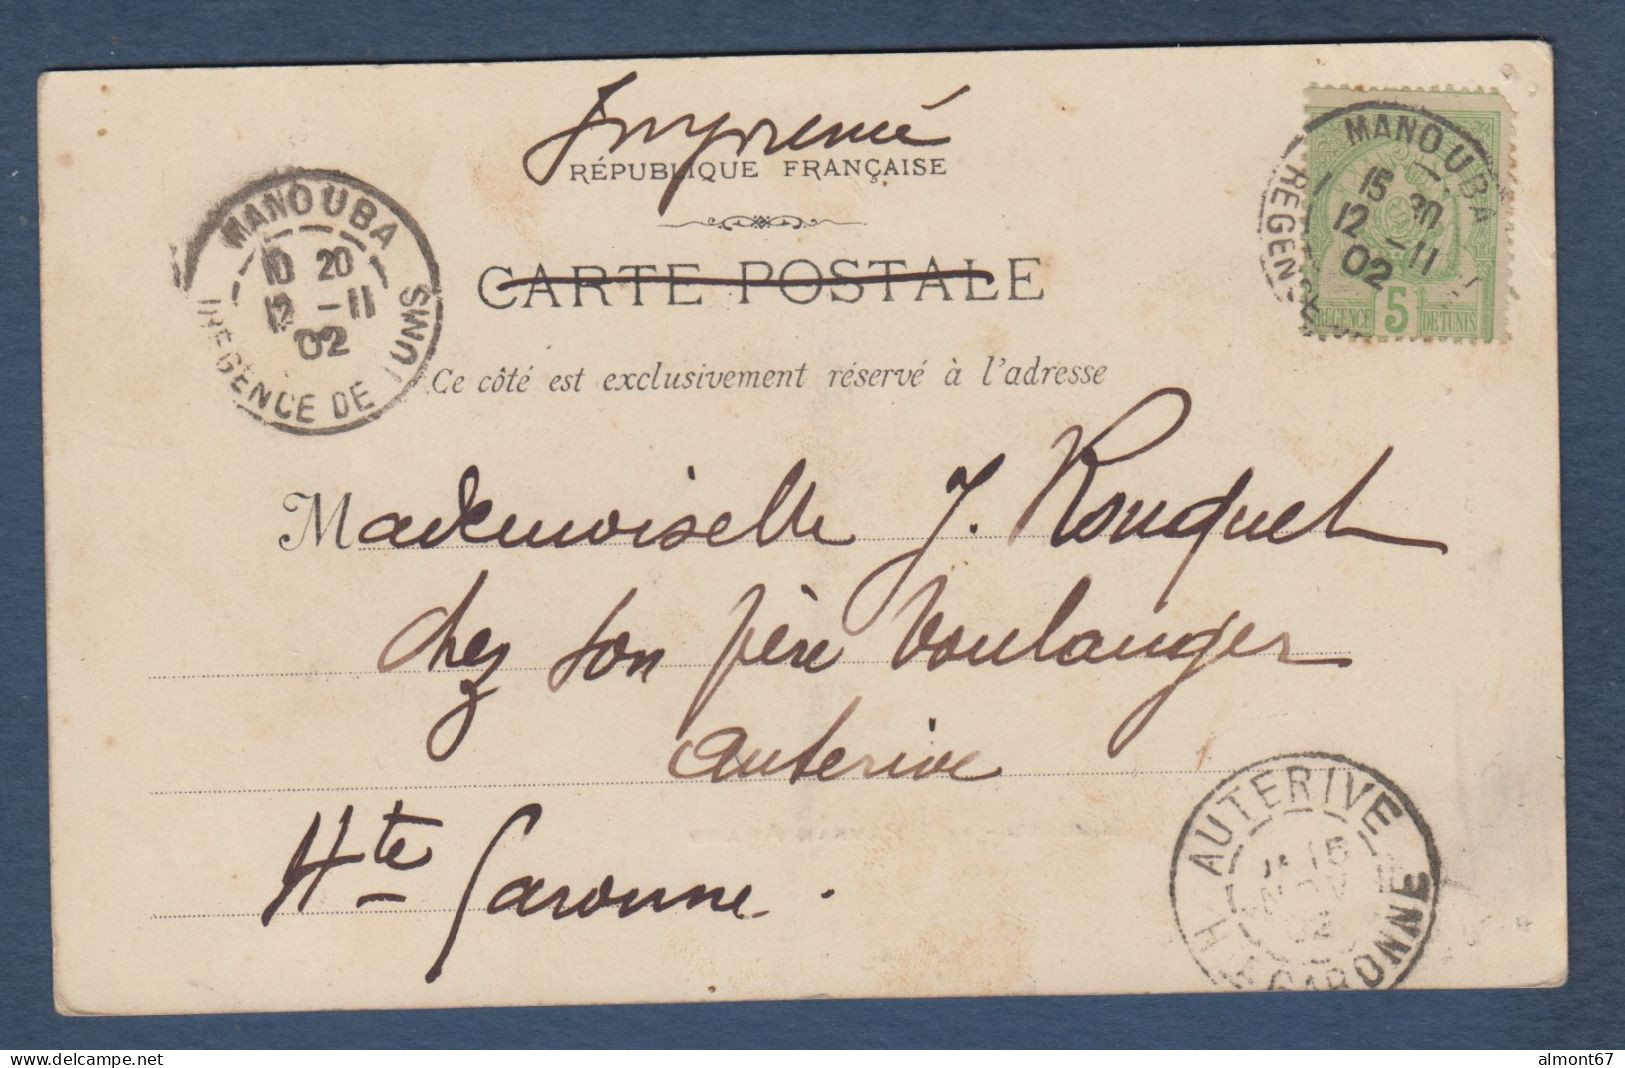 Imprimé
RÉPUBLIQUE FRANÇAISE
CARTE POSTALE
Ce côté est exclusivement réservé à l'adresse
MANOUBA
10 20
12 -11
02
REGENCE DE TUNIS
MANOUBA
15 30
12 -11
02
REGENCE
5
REGENCE DE TUNIS
Mademoiselle J. Rouquet
chez son père boulanger
Auterive
Hte Garonne.
AUTERIVE
15
NOV
02
Hte GARONNE
almont67